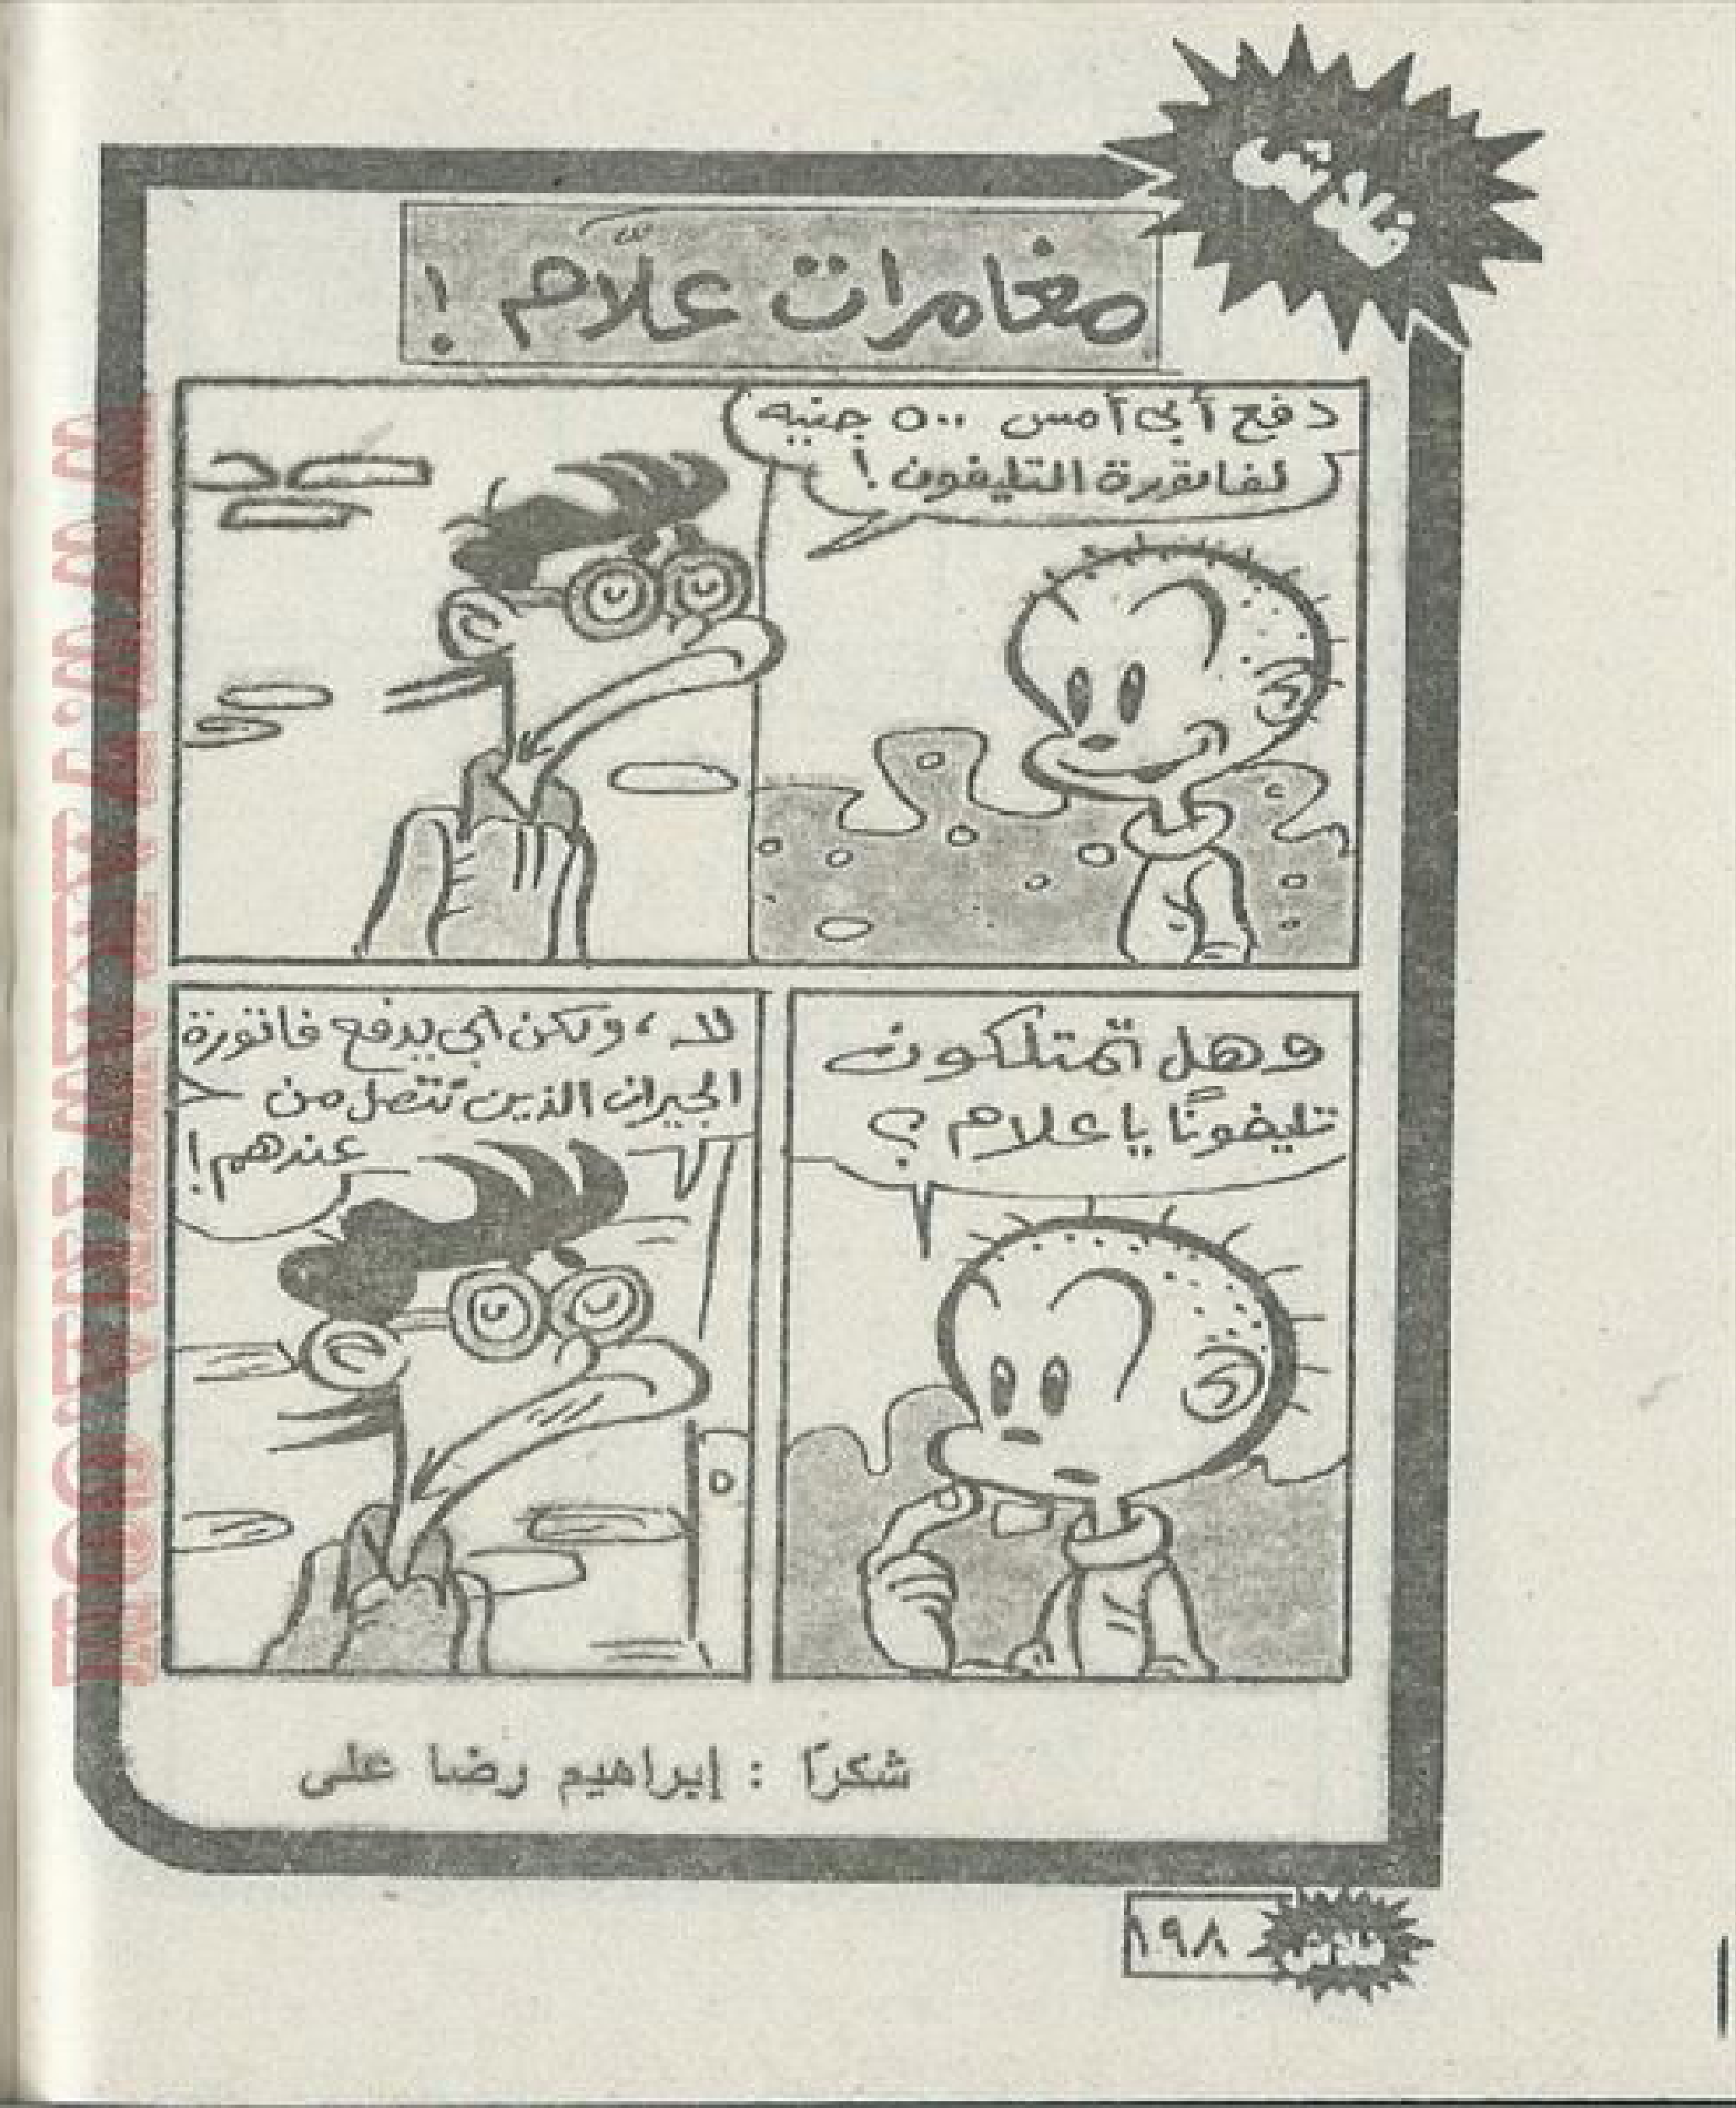 فلاش
مغامرات علَّام !
دفع أبي أمس ٥٠٠ جنيه
لفاتورة التليفون !
وهل تمتلكون
تليفونًا يا علام ؟
لا ، ولكن أبي يدفع فاتورة
الجيران الذين نتصل من
عندهم !
شكرًا : إبراهيم رضا على
١٩٨
فلاش